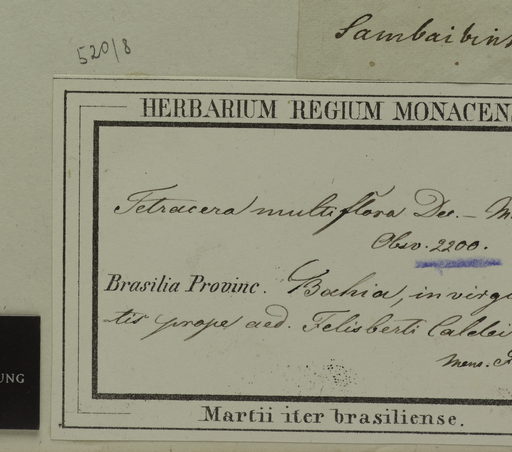 520/8
Sambaibin
HERBARIUM REGIUM MONACENS
Tetracera multiflora Dec. – M
Obsv. 2200.
Brasilia Provinc. Bahia, in virgu
tis prope aed. Felisberti Caldei
UNG
Mens.
Martii iter brasiliense.